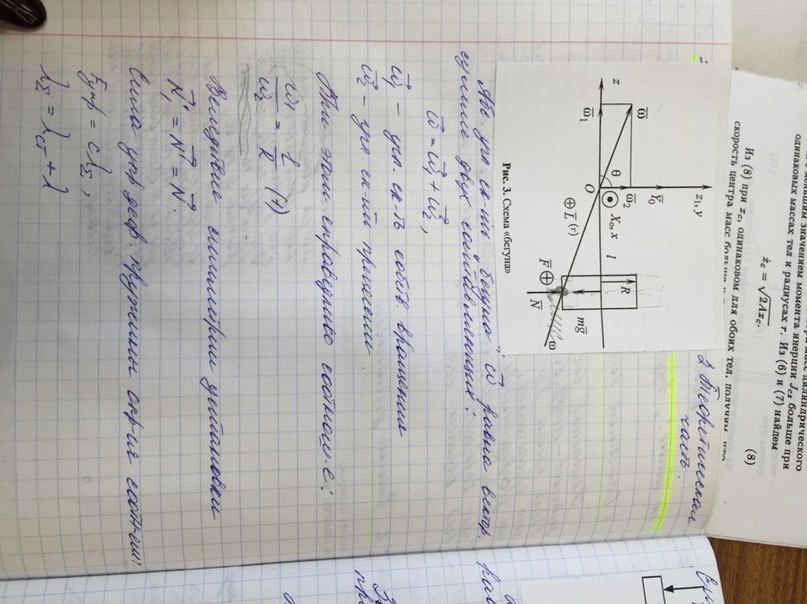 меньшим значением момента инерции J_cz больше при
одинаковых массах тел и радиусах r. Из (6) и (7) найдем
ẋ_c = √2Ax_c.
(8)
Из (8) при x_c, одинаковом для обоих тел, получим, что
скорость центра масс больше
2. Теоретическая
часть.
z
z₁, y
ω̄
ω̄₁
θ
ω̄₂
J̄₀
O
X₀, x
L̄⁽ᵉ⁾
l
R
F̄
N̄
mḡ
ω
Рис. 3. Схема «бегуна»
Абс. угл. ск-ть „бегуна" ω̄ равна вектор
сумме двух составляющих:
ω̄ = ω̄₁ + ω̄₂,
ω̄₁ - угл. ск-ть собств. вращения
ω̄₂ - угл. ск-ть прецессии.
При этом справедливо соотнош-е:
ω₁/ω₂ = l/R (1)
Вследствие симметрии установки
N̄₁' = N̄' = N̄.
Сила упр. деф. пружины опр-ся соотн-ем:
F упр = cλ_Σ,
λ_Σ = λ_ст + λ